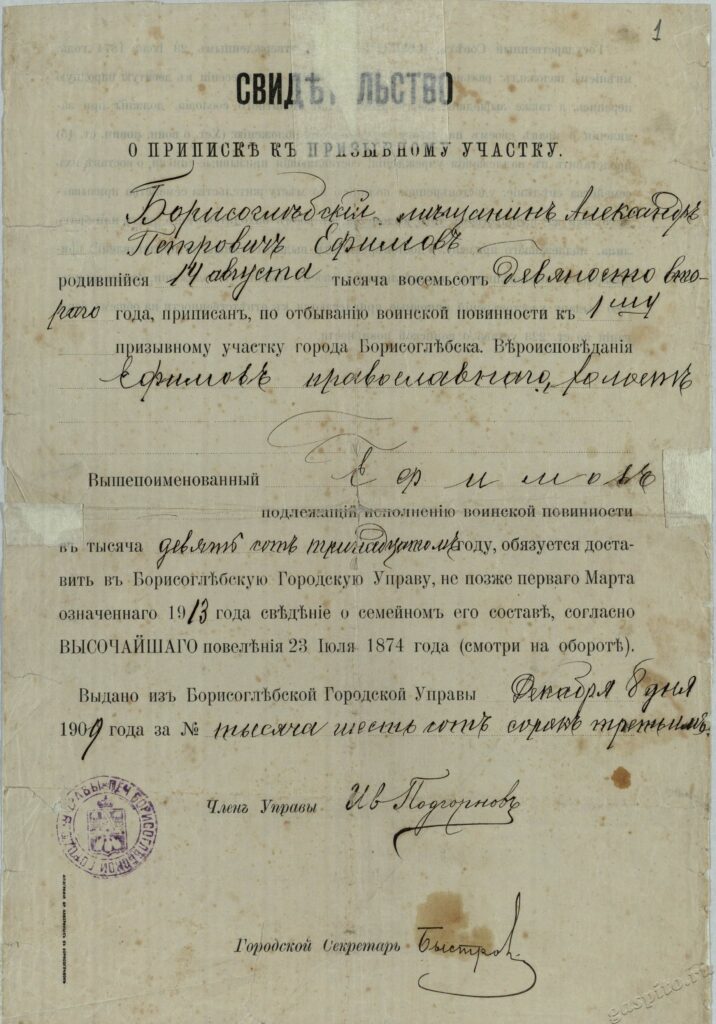 1
СВИДѢТЕЛЬСТВО
О ПРИПИСКѢ КЪ ПРИЗЫВНОМУ УЧАСТКУ.
Борисоглѣбскій мѣщанинъ Александръ
Петровичъ Ефимовъ
родившійся 14 августа тысяча восемьсотъ девяносто вто-
рого года, приписанъ, по отбыванію воинской повинности къ 1му
призывному участку города Борисоглѣбска. Вѣроисповѣданія
Ефимовъ православнаго, холостъ
Вышепоименованный Ефимовъ
подлежащій исполненію воинской повинности
въ тысяча девять сотъ тринадцатомъ году, обязуется доста-
вить въ Борисоглѣбскую Городскую Управу, не позже перваго Марта
означеннаго 1913 года свѣдѣніе о семейномъ его составѣ, согласно
ВЫСОЧАЙШАГО повелѣнія 23 Іюля 1874 года (смотри на оборотѣ).
Выдано изъ Борисоглѣбской Городской Управы Декабря 8 дня
1909 года за № тысяча шесть сотъ сорокъ третьимъ.
Членъ Управы Ив Подгорновъ
Городской Секретарь Быстров
gaspito.ru